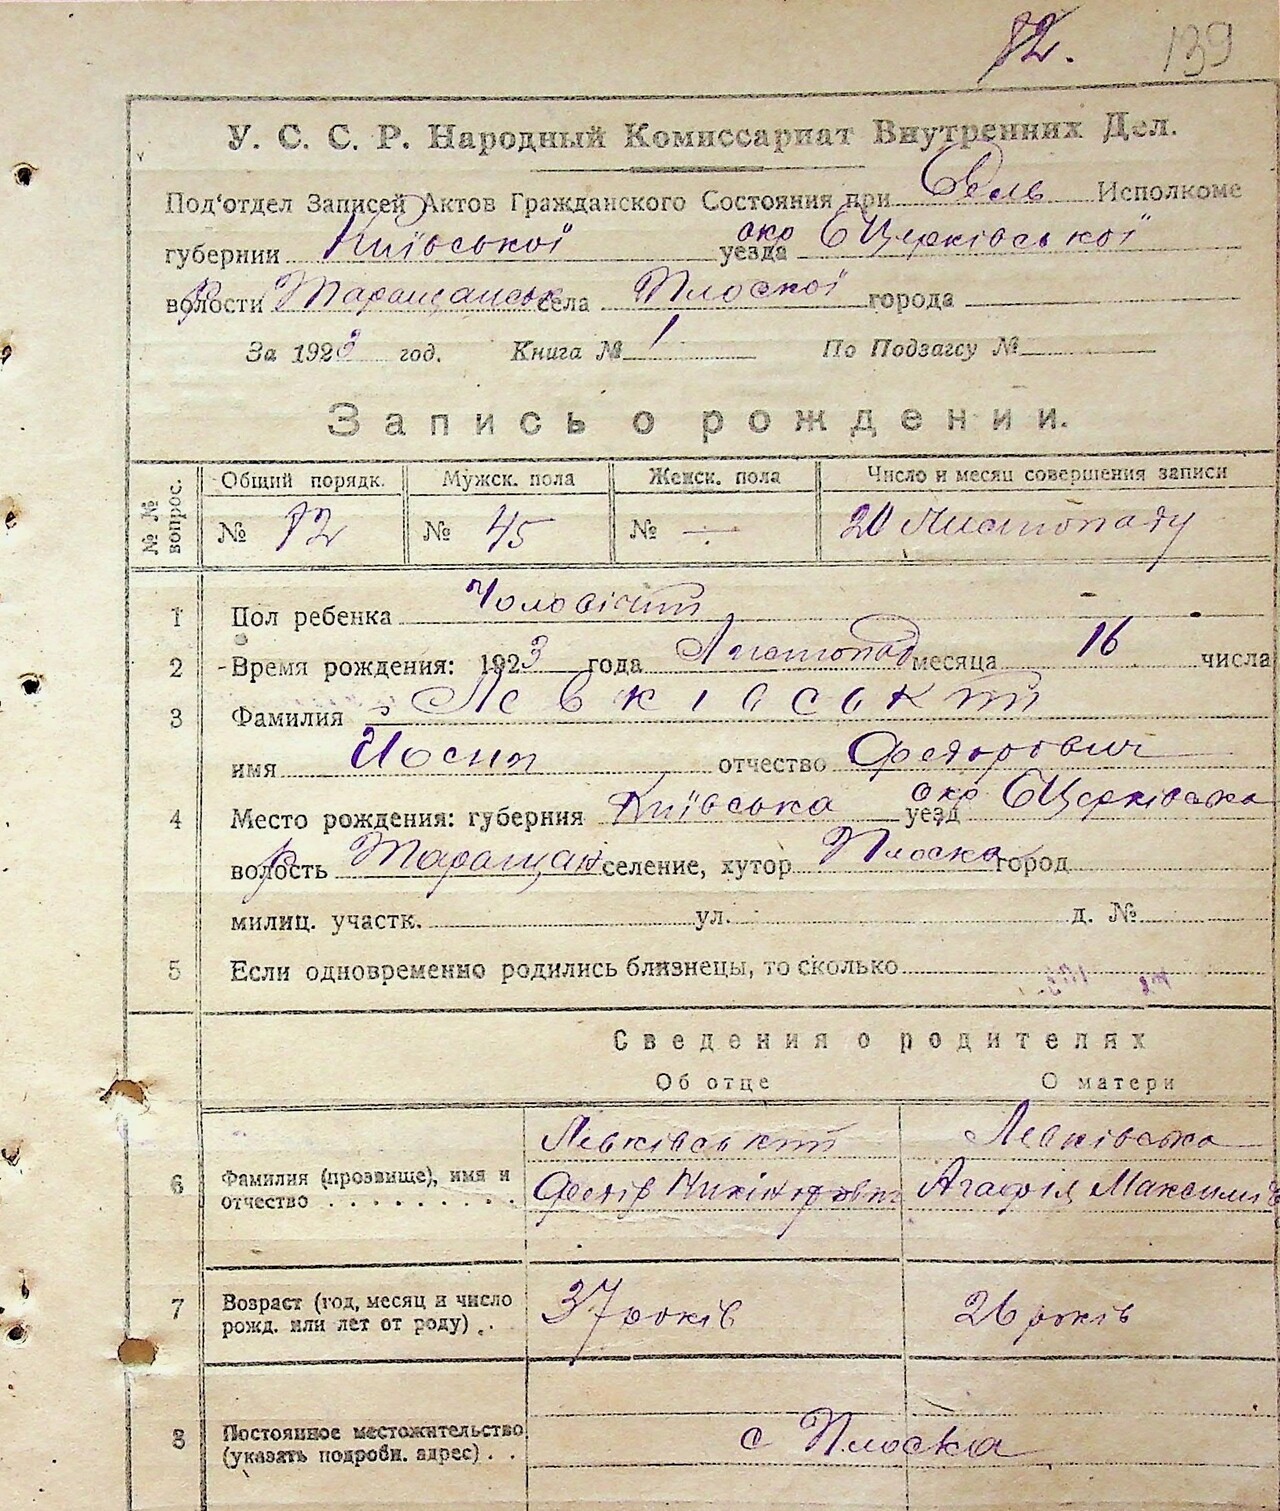 82. 139
У. С. С. Р. Народный Комиссариат Внутренних Дел.
Под'отдел Записей Актов Гражданского Состояния при Сель Исполкоме
губернии Київської уезда окр БЦерківської
волости р Таращанськ села Плоскої города
За 1923 год. Книга № 1 По Подзагсу №
Запись о рождении.
№ № вопрос. Общий порядк. Мужск. пола Женск. пола Число и месяц совершения записи
№ 72 № 45 № — 20 Листопаду
1 Пол ребенка Чоловічий
2 Время рождения: 1923 года Листопад месяца 16 числа
3 Фамилия Левківський
имя Йосип отчество Федорович
4 Место рождения: губерния Київська уезд окр БЦерківська
волость р Таращан селение, хутор Плоска город
милиц. участк. ул. д. №
5 Если одновременно родились близнецы, то сколько
Сведения о родителях
Об отце О матери
Левківський Левківська
6 Фамилия (прозвище), имя и отчество Федір Никіфорович Агафія Максимів
7 Возраст (год, месяц и число рожд. или лет от роду) . . 37 років 26 років
8 Постоянное местожительство (указать подробн. адрес) . . с Плоска